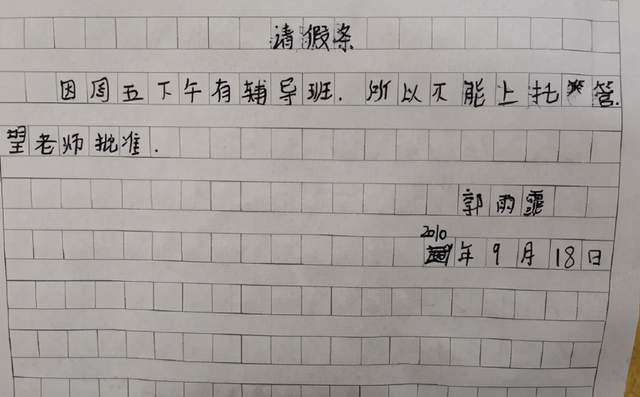 请假条
因周五下午有辅导班.所以不能上托管.
望老师批准.
郭雨霏
2010年9月18日